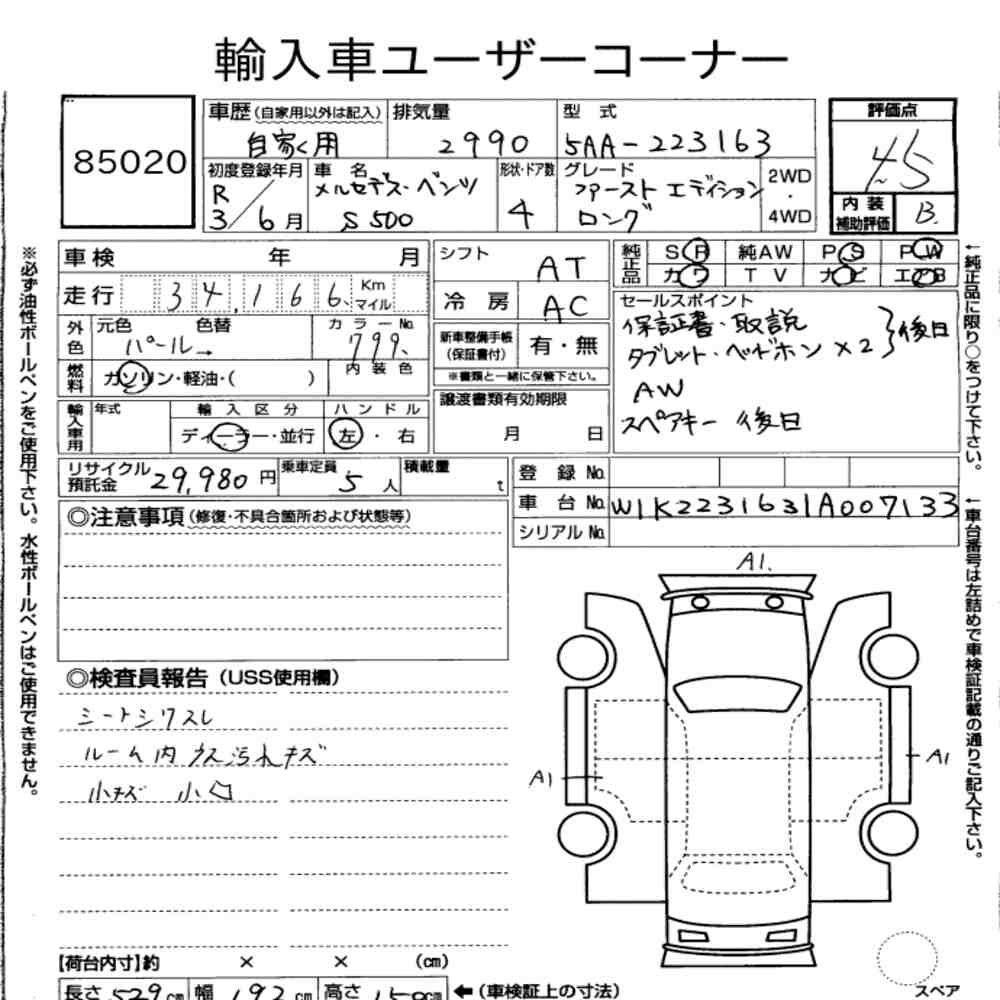 輸入車ユーザーコーナー
85020
車歴(自家用以外は記入) 自家用
排気量 2990
型 式 5AA-223163
評価点 4.5
内装補助評価 B.
初度登録年月 R 3/6月
車 名 メルセデス・ベンツ S500
形状・ドア数 4
グレード ファースト エディション ロング
2WD ・ 4WD
車検 年 月
走行 34,166 Km マイル
外色 元色 色替 パール カラーNo. 799.
燃料 ガソリン・軽油・( ) 内装色
輸入車用 年式 輸入区分 ディーラー・並行 ハンドル 左・右
シフト AT
冷房 AC
新車整備手帳(保証書付) 有・無
※書類と一緒に保管下さい。
譲渡書類有効期限 月 日
純正品 SR 純AW PS PW
カワ TV ナビ エアB
セールスポイント
保証書・取説
タブレット・ヘッドホン×2 }後日
AW
スペアキー 後日
リサイクル預託金 29,980円
乗車定員 5人
積載量 t
登録No.
車台No. W1K2231631A007133
シリアルNo.
◎注意事項(修復・不具合箇所および状態等)
◎検査員報告(USS使用欄)
シートシワスレ
ルーム内 クスミ汚れキズ
小キズ 小凹
A1.
A1
A1
【荷台内寸】約 × × (cm)
長さ 529cm 幅 192cm 高さ 150cm ←(車検証上の寸法)
スペア
※必ず油性ボールペンをご使用下さい。水性ボールペンはご使用できません。
←純正品に限り○をつけて下さい。
←車台番号は左詰めで車検証記載の通りご記入下さい。